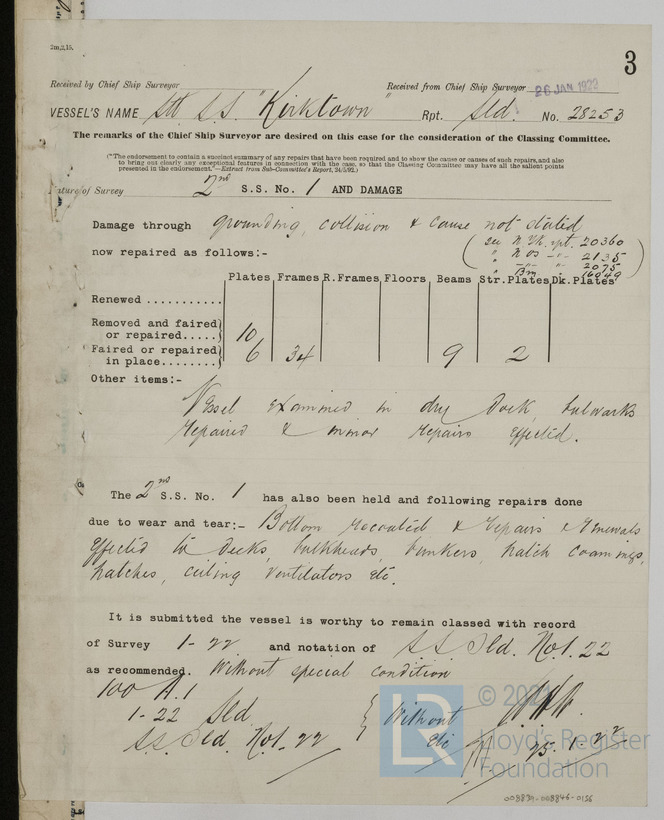 2m,2,15.
3
Received by Chief Ship Surveyor
Received from Chief Ship Surveyor 26 JAN 1922
VESSEL'S NAME Stl S.S. "Kirktown" Rpt. Sld. No. 28253
The remarks of the Chief Ship Surveyor are desired on this case for the consideration of the Classing Committee.
("The endorsement to contain a succinct summary of any repairs that have been required and to show the cause or causes of such repairs, and also
to bring out clearly any exceptional features in connection with the case, so that the Classing Committee may have all the salient points
presented in the endorsement."—Extract from Sub-Committee's Report, 24/5/92.)
Nature of Survey 2nd S.S. No. 1 AND DAMAGE
Damage through grounding, collision & cause not stated
(see N.Yk. rpt. 20360
now repaired as follows:-
" 2135
" 2075
" 16049)
Plates Frames R.Frames Floors Beams Str.Plates Dk.Plates
Renewed ...........
Removed and faired
or repaired..... 10
Faired or repaired
in place........ 6 34 9 2
Other items:-
Vessel examined in dry dock, bulwarks
repaired & minor repairs effected.
The 2nd S.S. No. 1 has also been held and following repairs done
due to wear and tear:- Bottom recoated & repairs & renewals
effected to decks, bulkheads, bunkers, hatch coamings,
hatches, ceiling ventilators etc.
It is submitted the vessel is worthy to remain classed with record
of Survey 1-22 and notation of S.S. Sld. No.1. 22
as recommended. Without special condition
100 A.1
1-22 Sld
S.S. Sld. No.1. 22
Without
etc
25.1.22
© 2021
LR
Lloyd's Register
Foundation
008839-008846-0156